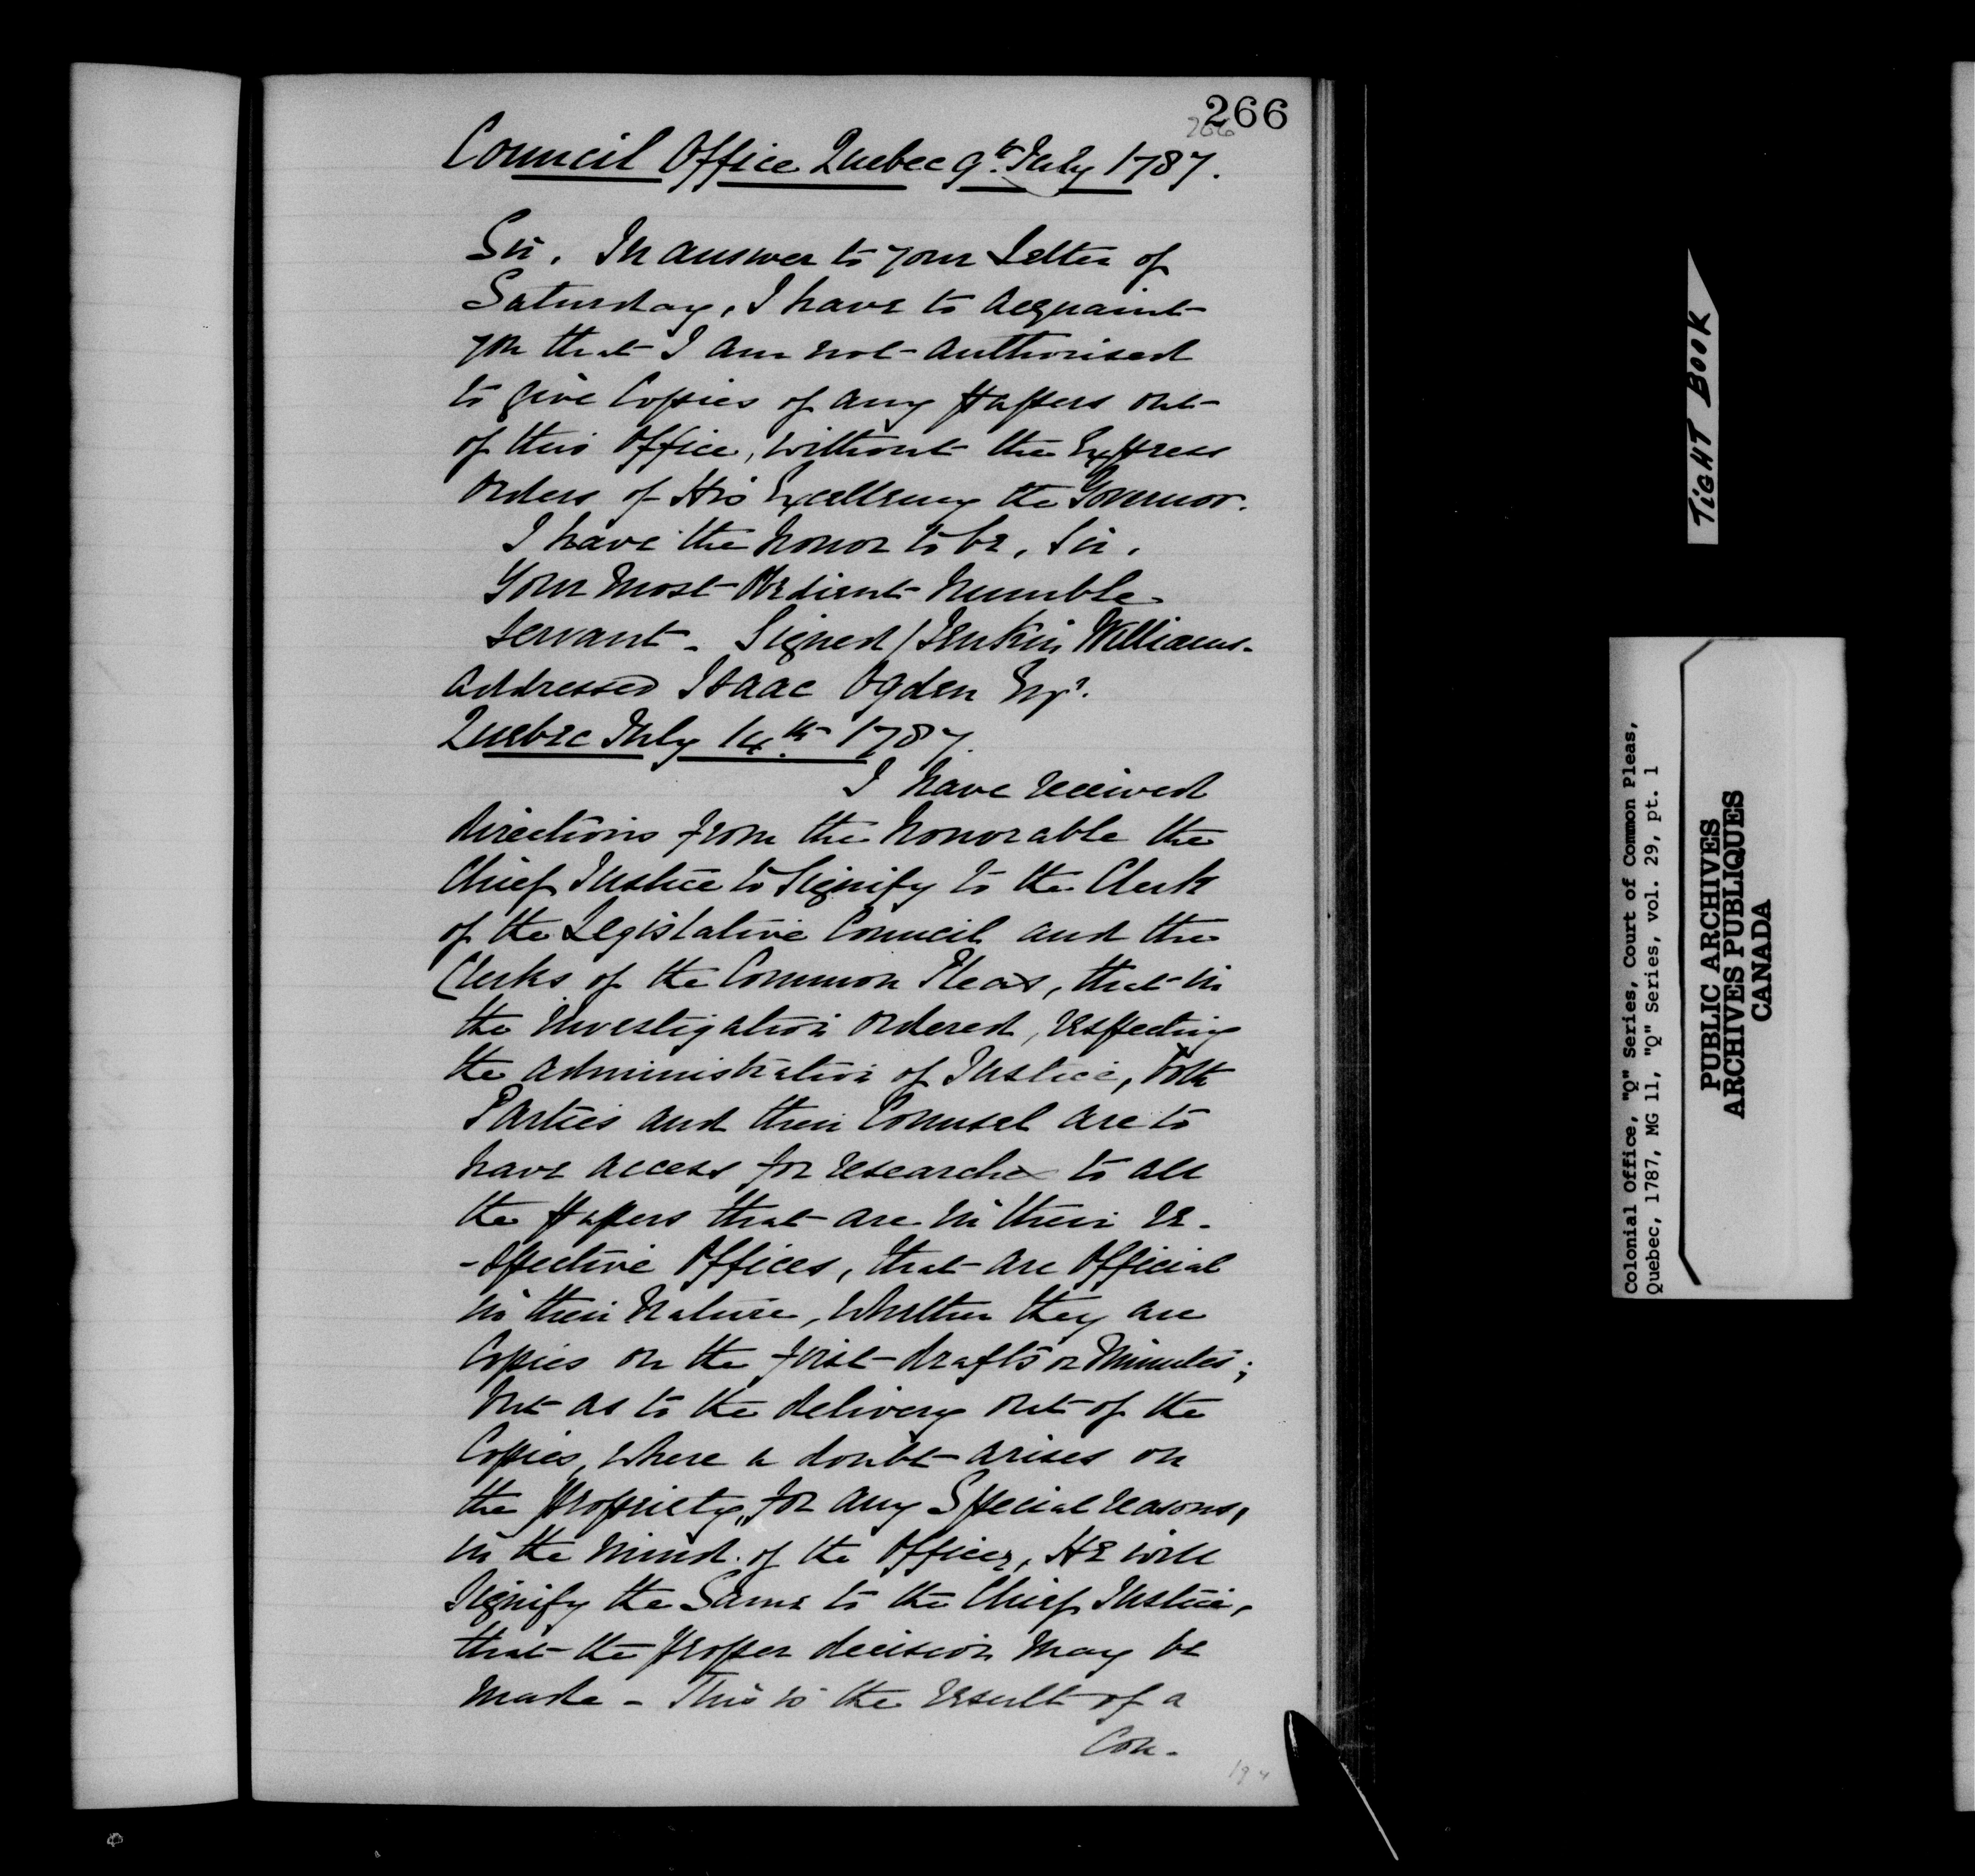 266
266
Council Office Quebec 9th July 1787.
Sir. In answer to your Letter of
Saturday, I have to acquaint
you that I am not authorised
to give Copies of any Papers out
of this Office, without the Express
Orders of His Excellency the Governor.
I have the honor to be, Sir,
Your most Obedient humble
Servant - Signed / Jenkin Williams.
addressed Isaac Ogden Esqr.
Quebec July 14th 1787.
I have received
directions from the honorable the
Chief Justice to Signify to the Clerk
of the Legislative Council and the
Clerks of the Common Pleas, that in
the investigation ordered, respecting
the administration of Justice, both
Parties and their Counsel are to
have access for researches to all
the Papers that are in their re-
-spective Offices, that are Official
in their nature, whether they are
Copies or the first drafts or Minutes;
but as to the delivery out of the
Copies, where a doubt arises on
the propriety, for any Special reasons,
in the mind of the Officer, He will
Signify the Same to the Chief Justice,
that the proper decision may be
made - This is the result of a
Con-
TIGHT BOOK
Colonial Office, "Q" Series, Court of Common Pleas,
Quebec, 1787, MG 11, "Q" Series, vol. 29, pt. 1
PUBLIC ARCHIVES
ARCHIVES PUBLIQUES
CANADA